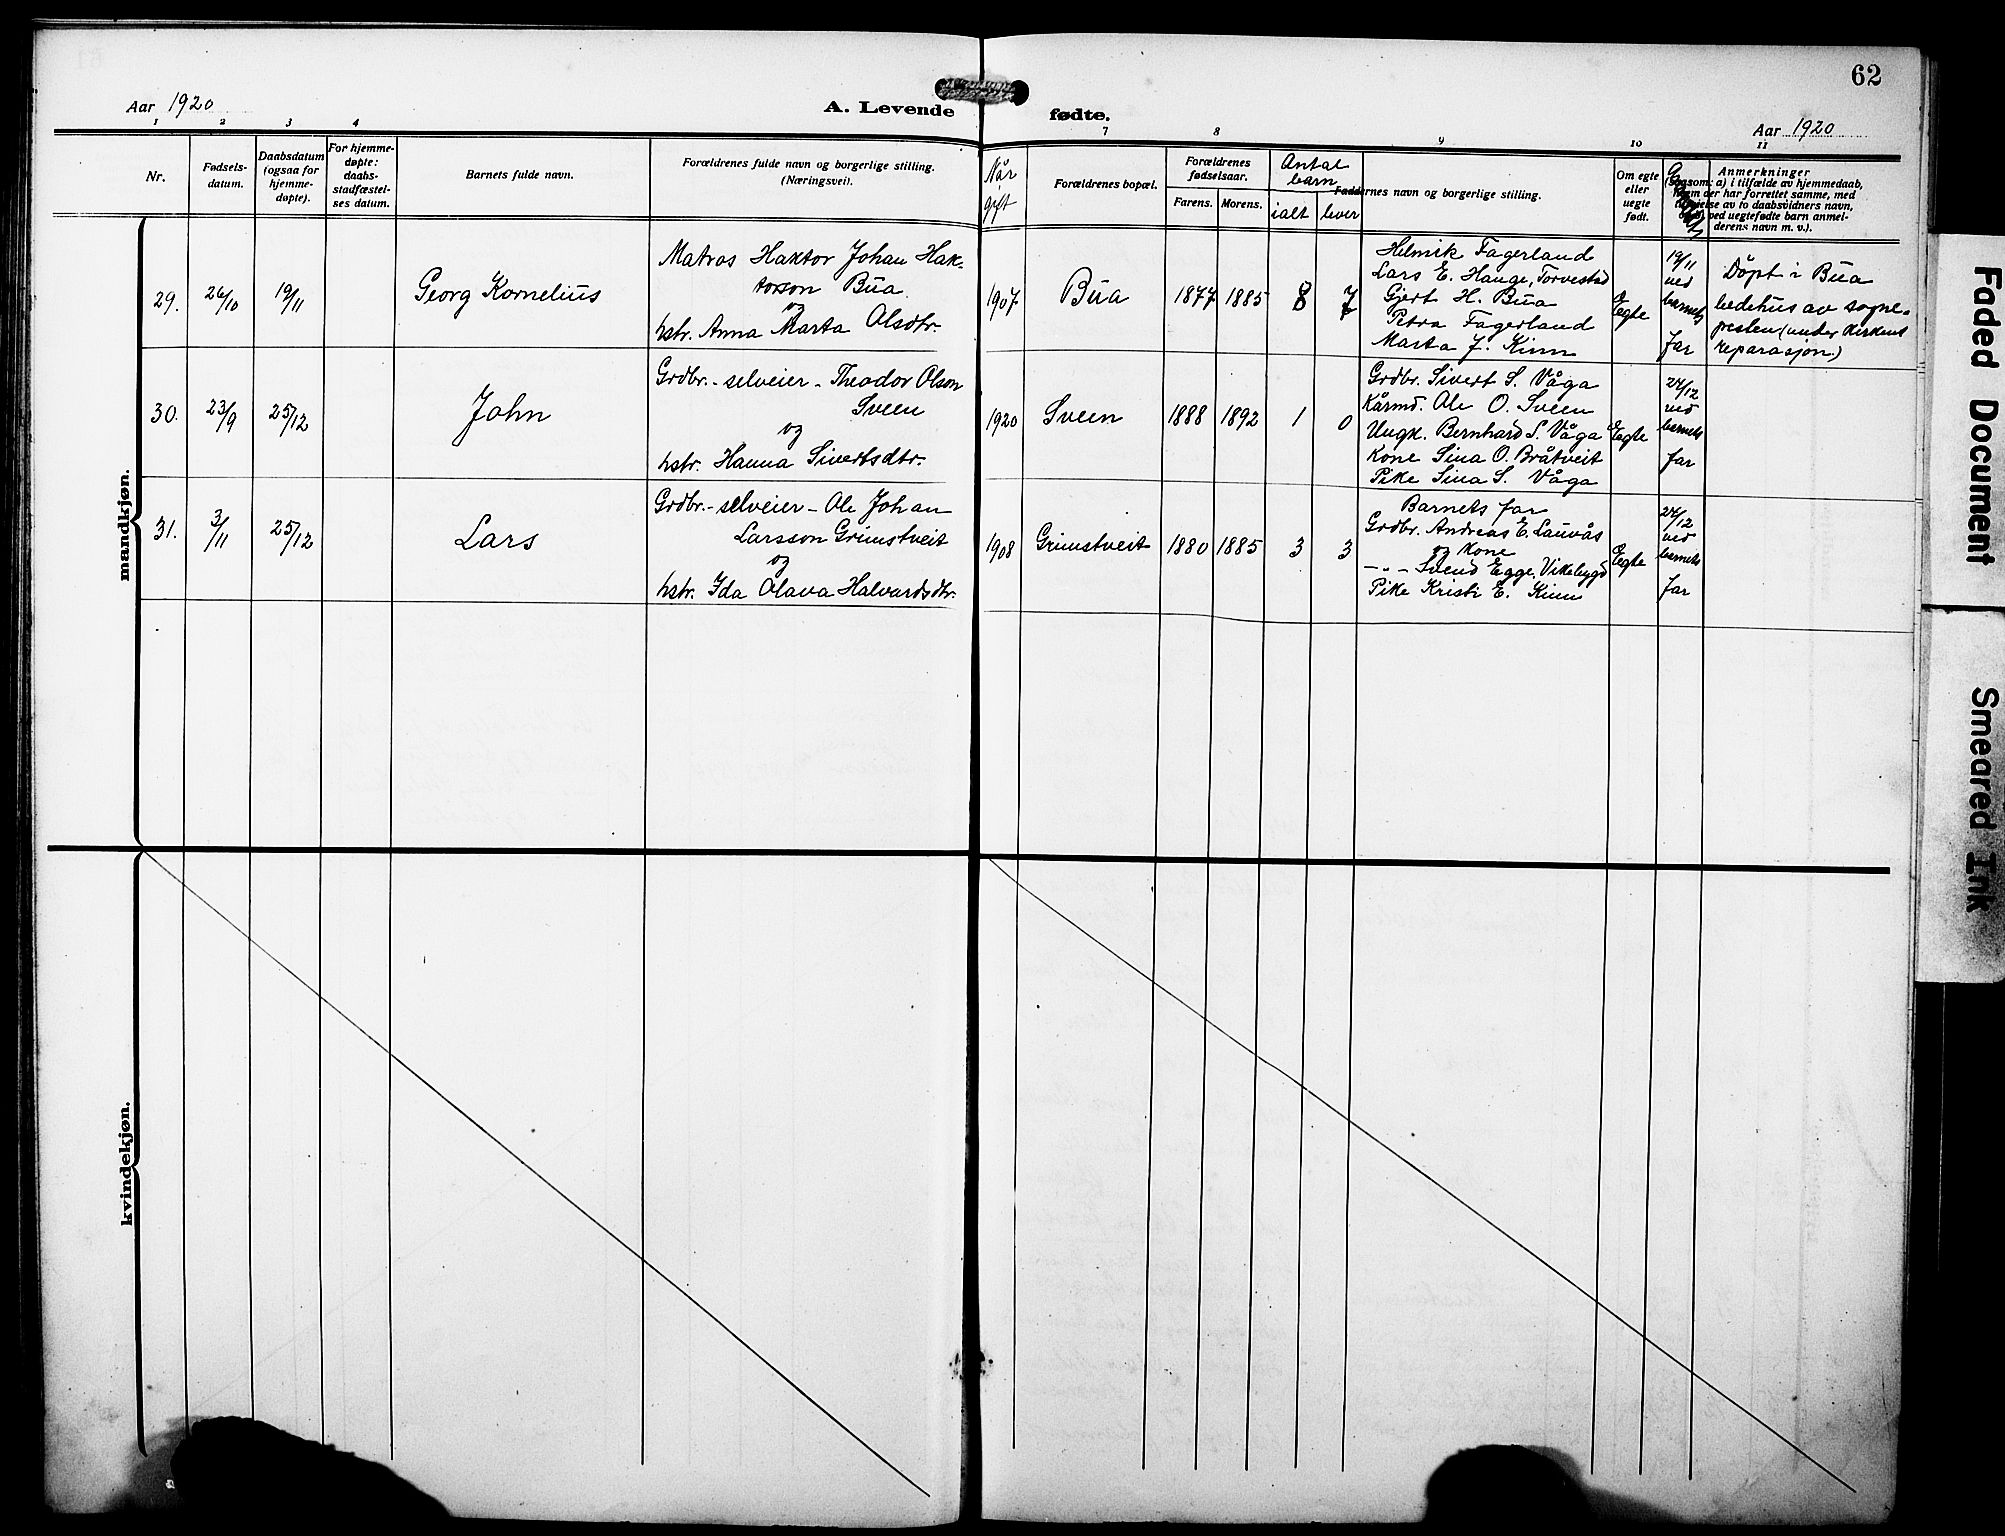 62
Aar 1920
A. Levende
fødte.
Aar 1920
1 2 3 4
7 8 9 10 11
Nr.
Fødsels-
datum.
Daabsdatum
(ogsaa for
hjemme-
døpte).
For hjemme-
døpte:
daabs-
stadfæstel-
ses datum.
Barnets fulde navn.
Forældrenes fulde navn og borgerlige stilling.
(Næringsvei).
Når
gift
Forældrenes bopæl.
Forældrenes
fødselsaar.
Farens. Morens.
Antal
barn
ialt lever
Faddernes navn og borgerlige stilling.
Om egte
eller
uegte
født.
Anmerkninger
(saasom: a) i tilfælde av hjemmedaab,
hvem der har forrettet samme, med
av to daabsvidners navn,
ved uegtefødte barn anmel-
derens navn m. v.).
mandkjøn.
29. 26/10 19/11
Georg Kornelius
Matros Haktor Johan Hak-
torson Bua
og
hstr. Anna Marta Olsdtr.
1907 Bua 1877 1885 8 7
Helmik Fagerland
Lars E. Hauge, Torvestad
Gjert H. Bua
Petra Fagerland
Marta J. Kinn
Egte
19/11
ved
barnets
far
Döpt i Bua
bedehus av sogne-
presten (under kirkens
reparasjon.)
30. 23/9 25/12
John
Grdbr.- selveier - Theodor Olson
Sveen
og
hstr. Hanna Sivertsdtr.
1920 Sveen 1888 1892 1 0
Grdbr. Sivert S. Våga
Kårmd. Ole O. Sveen
Ungk. Bernhard S. Våga
Kone Sina O. Bråtveit
Pike Sina S. Våga
Egte
24/12
ved
barnets
far
31. 3/11 25/12
Lars
Grdbr.- selveier - Ole Johan
Larsson Grimstveit
og
hstr. Ida Olava Halvardsdtr.
1908 Grimstveit 1880 1885 3 3
Barnets far
Grdbr. Andreas E. Lauvås
og kone
-"- Svend Egge, Vikebygd
Pike Kristi E. Kinn
Egte
24/12
ved
barnets
far
kvindekjøn.
Faded Document
Smeared Ink